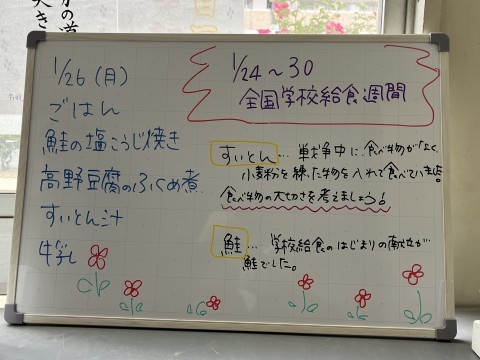 1/26（月）
ごはん
鮭の塩こうじ焼き
高野豆腐のふくめ煮
すいとん汁
牛乳
1/24～30
全国学校給食週間
すいとん… 戦争中に、食べ物がなく、
小麦粉を練った物を入れて食べていました。
食べ物の大切さを考えましょう！
鮭… 学校給食のはじまりの献立が
鮭でした。